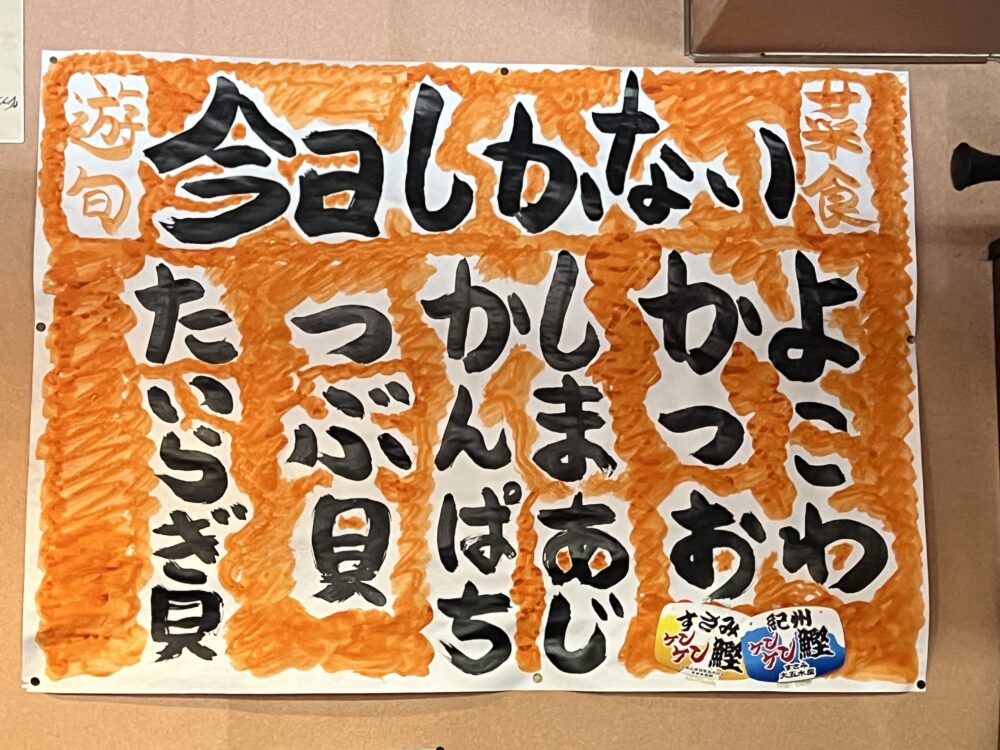 今日しかない
菜食
遊旬
よこわ
かつお
しまあじ
かんぱち
つぶ貝
たいらぎ貝
すさみ
ケンケン鰹
紀州
ケンケン鰹
すさみ